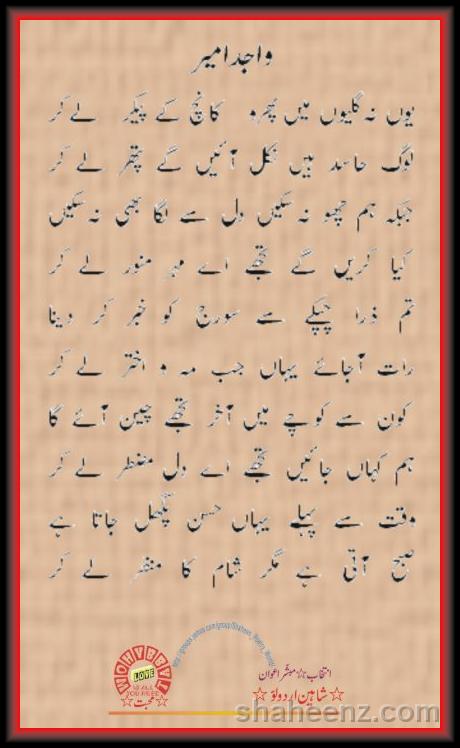 واجد امیر
یوں نہ گلیوں میں پھرو کانچ کے پیکر لے کر
لوگ حاسد ہیں نکل آئیں گے پتھر لے کر
جبکہ ہم چھو نہ سکیں دل سے لگا بھی نہ سکیں
کیا کریں گے تجھے اے مہرِ منور لے کر
تم ذرا چپکے سے سورج کو خبر کر دینا
رات آجائے یہاں جب مہ و اختر لے کر
کون سے کوچے میں آخر تجھے چین آئے گا
ہم کہاں جائیں تجھے اے دل مضطر لے کر
وقت سے پہلے یہاں حسن پگھل جاتا ہے
صبح آتی ہے مگر شام کا منظر لے کر
LOVE
محبت
انتخاب: مبشر اعوان
شاہین اردو لوّ
shaheenz.com